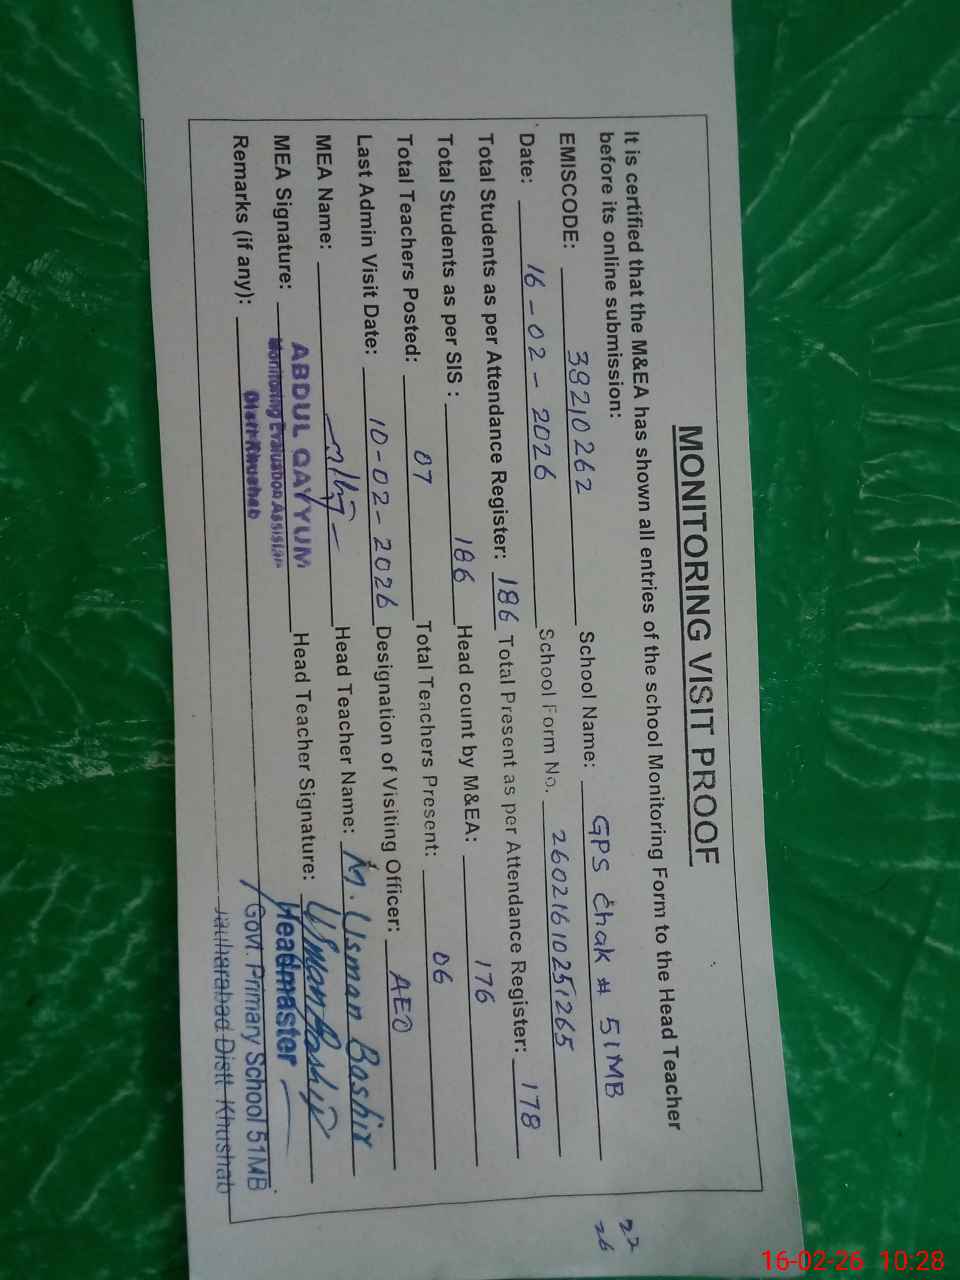 MONITORING VISIT PROOF
It is certified that the M&EA has shown all entries of the school Monitoring Form to the Head Teacher
before its online submission:
EMISCODE: 38210262 School Name: GPS Chak # 51MB
Date: 16-02-2026 School Form No. 26021610251265
Total Students as per Attendance Register: 186 Total Present as per Attendance Register: 178
Total Students as per SIS : 186 Head count by M&EA: 176
Total Teachers Posted: 07 Total Teachers Present: 06
Last Admin Visit Date: 10-02-2026 Designation of Visiting Officer: AEO
MEA Name: Head Teacher Name: M. Usman Bashir
MEA Signature: ABDUL QAYYUM Head Teacher Signature: Usman Bashir
Monitoring Evaluation Assistan Headmaster
Remarks (if any): Distt Khushab Govt. Primary School 51MB
Jauharabad Distt. Khushab
22
26
16-02-26 10:28